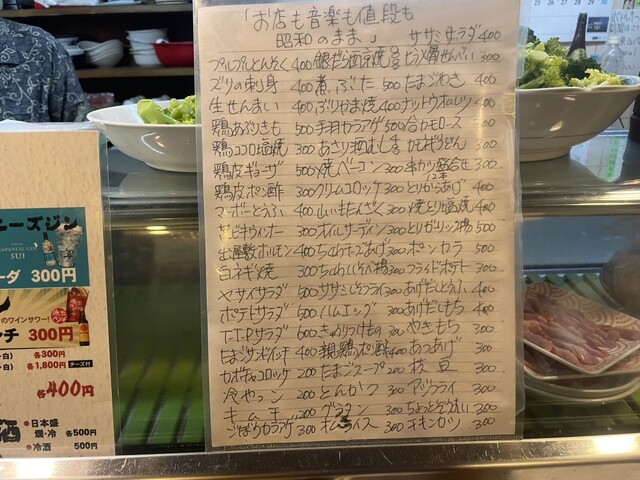 「お店も音楽も値段も
昭和のまま」 ササミサラダ400
プルプルとんそく 400
ズリの刺身 400 煮ぶた 500 たまごわさ 400
生せんまい 400 ぶりかま焼 400 ナットウオムレツ 400
鶏あぶりきも 500 手羽カラアゲ 500 合カモロース 300
鶏ココロ塩焼 300 あさり酒むし カモギうどん 300
鶏皮ギョーザ 500 焼ベーコン 300 串カツ盛合せ 300
12本
鶏皮ポン酢 300 クリームコロッケ 300 とりからあげ 400
マーボーとうふ 400 山いもたんざく 300 焼とり塩焼 400
サビキウィンナー 300 オイルサーディン 300 とりガリリン揚 500
出屋敷ホルモン 400 ちくわチーズあげ 300 ポンカラ 500
白ネギ焼 300 ちくわしそイソ揚 300 フライドポテト 300
ヤサイサラダ 500 ササミしそフライ 300 あげだしとうふ 400
ポテトサラダ 500 ハムエッグ 300 あげだしもち 400
T.T.Pサラダ 600 きゅうりつけもの 300 やきもち 300
たまごサンドイッチ 400 親鶏ポン酢 400 あつあげ 300
カボチャコロッケ 200 たまごスープ 200 枝豆 300
冷やっこ 200 とんかつ 300 アジフライ 300
キムチ 200 グラタン 300 ちょっとぞうすい 300
ごぼうカラアゲ 300 オムライス 300 チキンカツ 300
ニーズジン
JAPANESE GIN
SUI
ーダ 300円
のワインサワー!
ンチ 300円
・白) 各300円
・白) 各1,800円 チーズ付
各400円
酒
●日本盛
燗・冷 各500円
●冷酒 500円